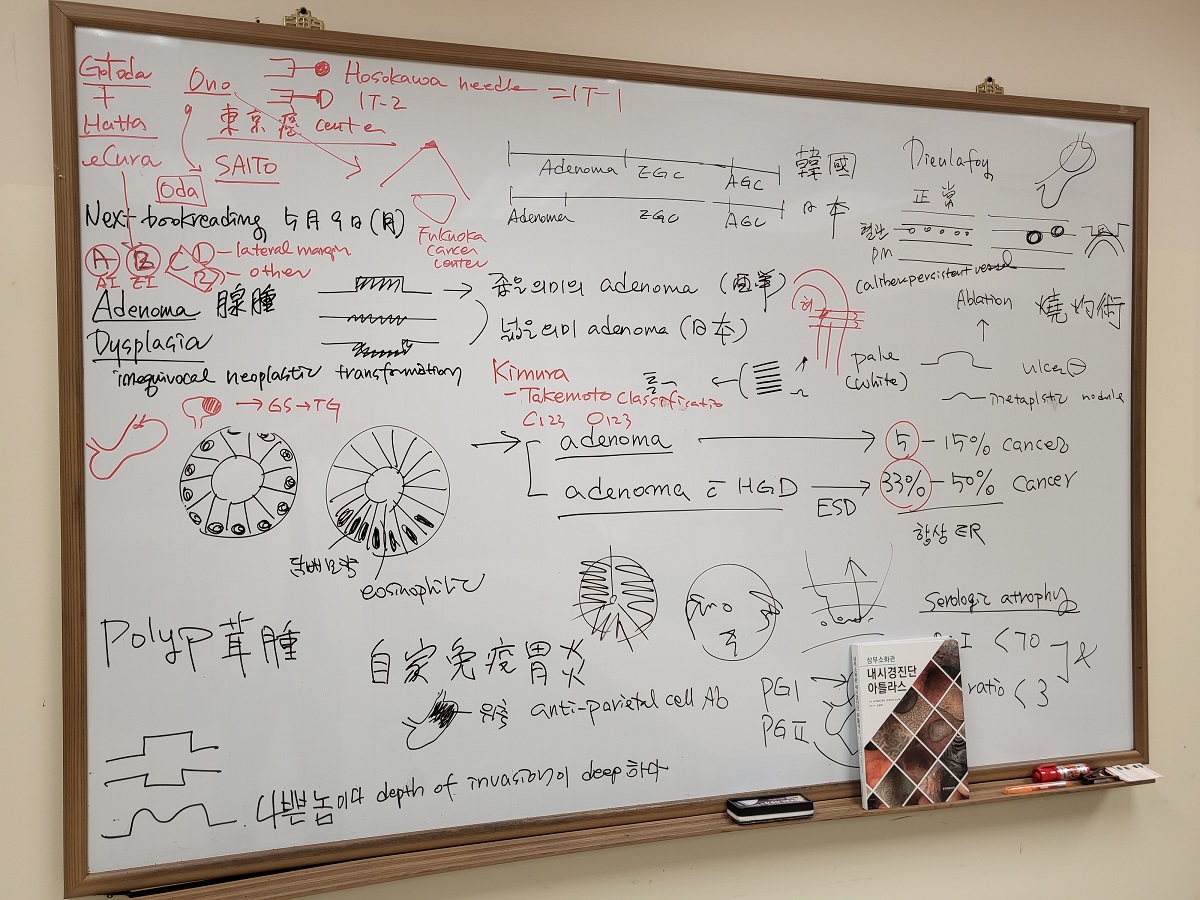 Gotoda
+
Hatta
eCura
Ono
Hosokawa needle = IT-1
IT-2
東京癌 center
SAITO
Oda
Fukuoka
cancer
center
Next bookreading 5月9日(月)
A B
AI EI
1 - lateral margin
2 - other
Adenoma EGC AGC 韓國
Adenoma EGC AGC 日本
Dieulafoy
正常
혈관
pm
caliber persistent vessel
Adenoma 腺腫
Dysplasia
unequivocal neoplastic transformation
좁은의미의 adenoma
넓은의미 adenoma (日本)
위
Ablation 燒灼術
pale
(white)
ulcer ⊖
metaplstic nodule
Kimura
- Takemoto classificatio
C123 O123
→ GS → TG
adenoma → 5 - 15% cancer
adenoma c̄ HGD → 33% - 50% cancer
ESD
항상 ER
담배모양
eosinophilic
Polyp 茸腫
自家免疫胃炎
anti-parietal cell Ab
PGI
PGII
Serologic atrophy
I < 70
ratio < 3
&
나쁜놈이다 depth of invasion이 deep하다
상부소화관
내시경진단
아틀라스